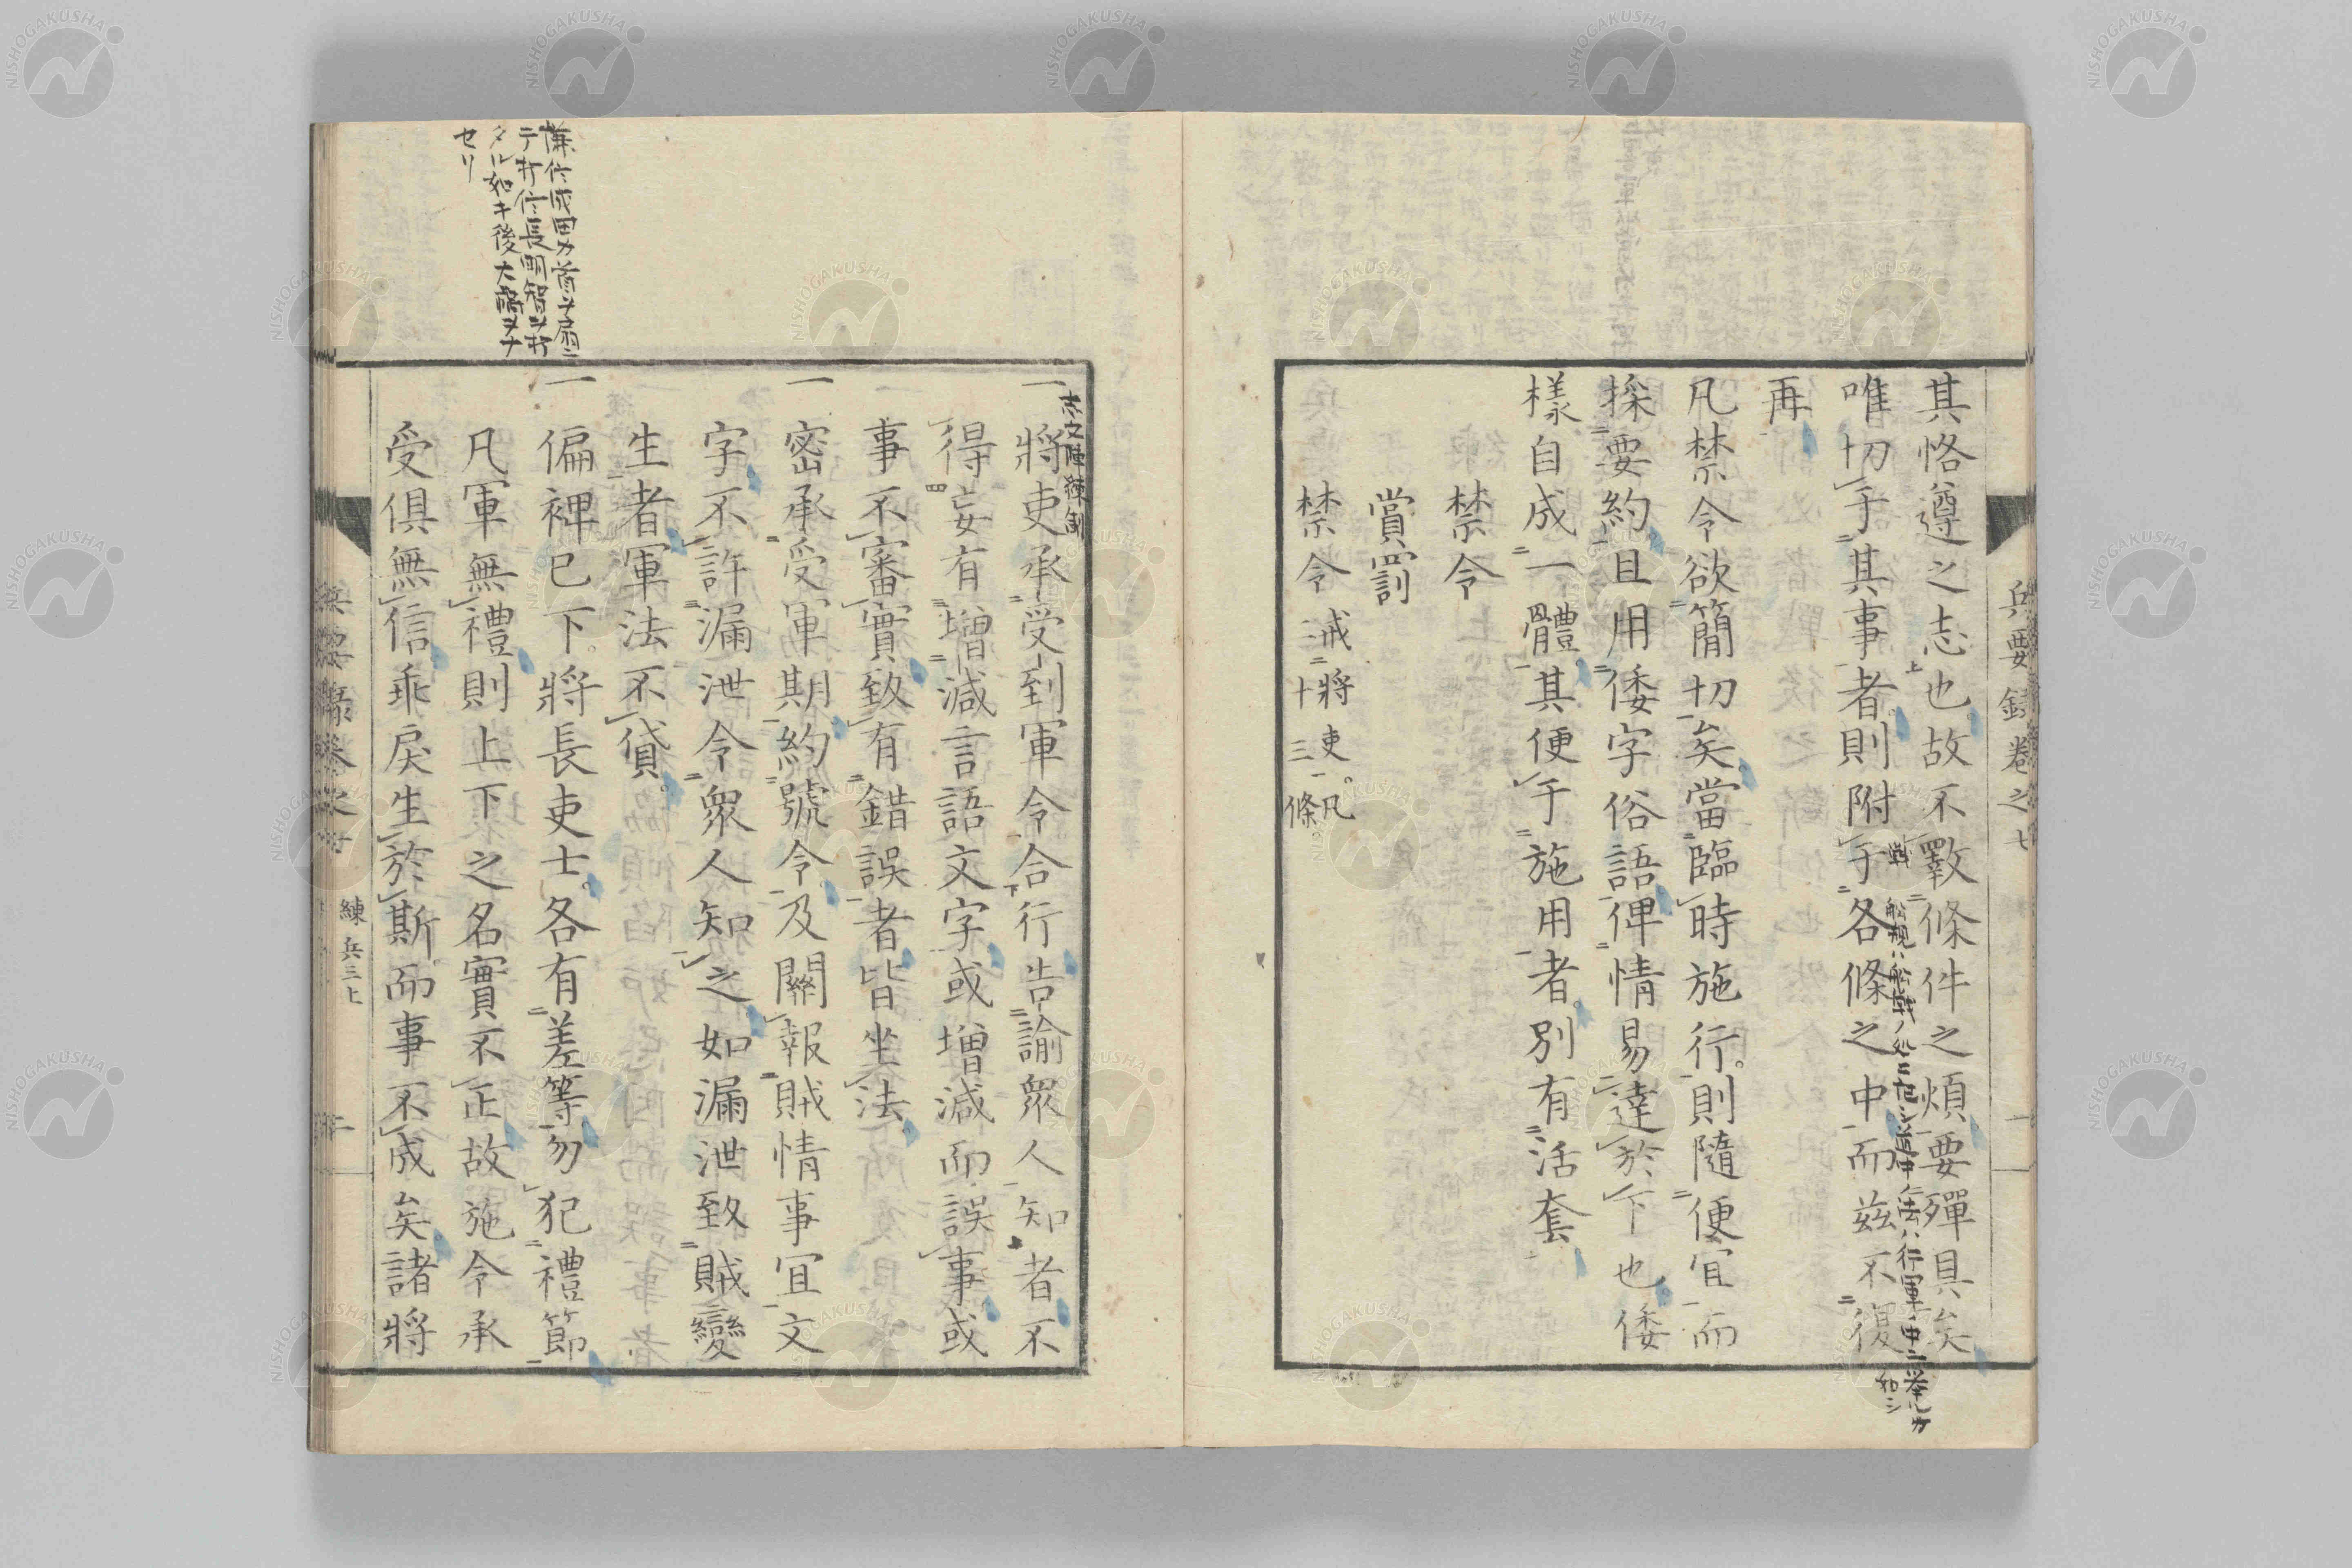 兵要録卷之七
其恪遵之志也故不斁條件之煩要殫具矣
唯切于其事者則附于各條之中而茲不復
再
凡禁令欲簡切矣當臨時施行則隨便宜而
採要約且用倭字俗語俾情易達於下也倭
樣自成一體其便于施用者別有活套
禁令
賞罰
禁令 戒將吏凡
二十三條
一將吏承受到軍令合行告諭衆人知者不
得妄有增減言語文字或增減而誤事或
事不審實致有錯誤者皆坐法
一密承受軍期約號令及關報賊情事宜文
字不許漏泄令衆人知之如漏泄致賊變
生者軍法不貸
一偏裨已下將長吏士各有差等勿犯禮節
凡軍無禮則上下之名實不正故施令承
受俱無信乖戾生於斯而事不成矣諸將
練兵三上
テ打信長明智ヲ打
タル如キ後大禍ヲナ
セリ
NISHOGAKUSHA